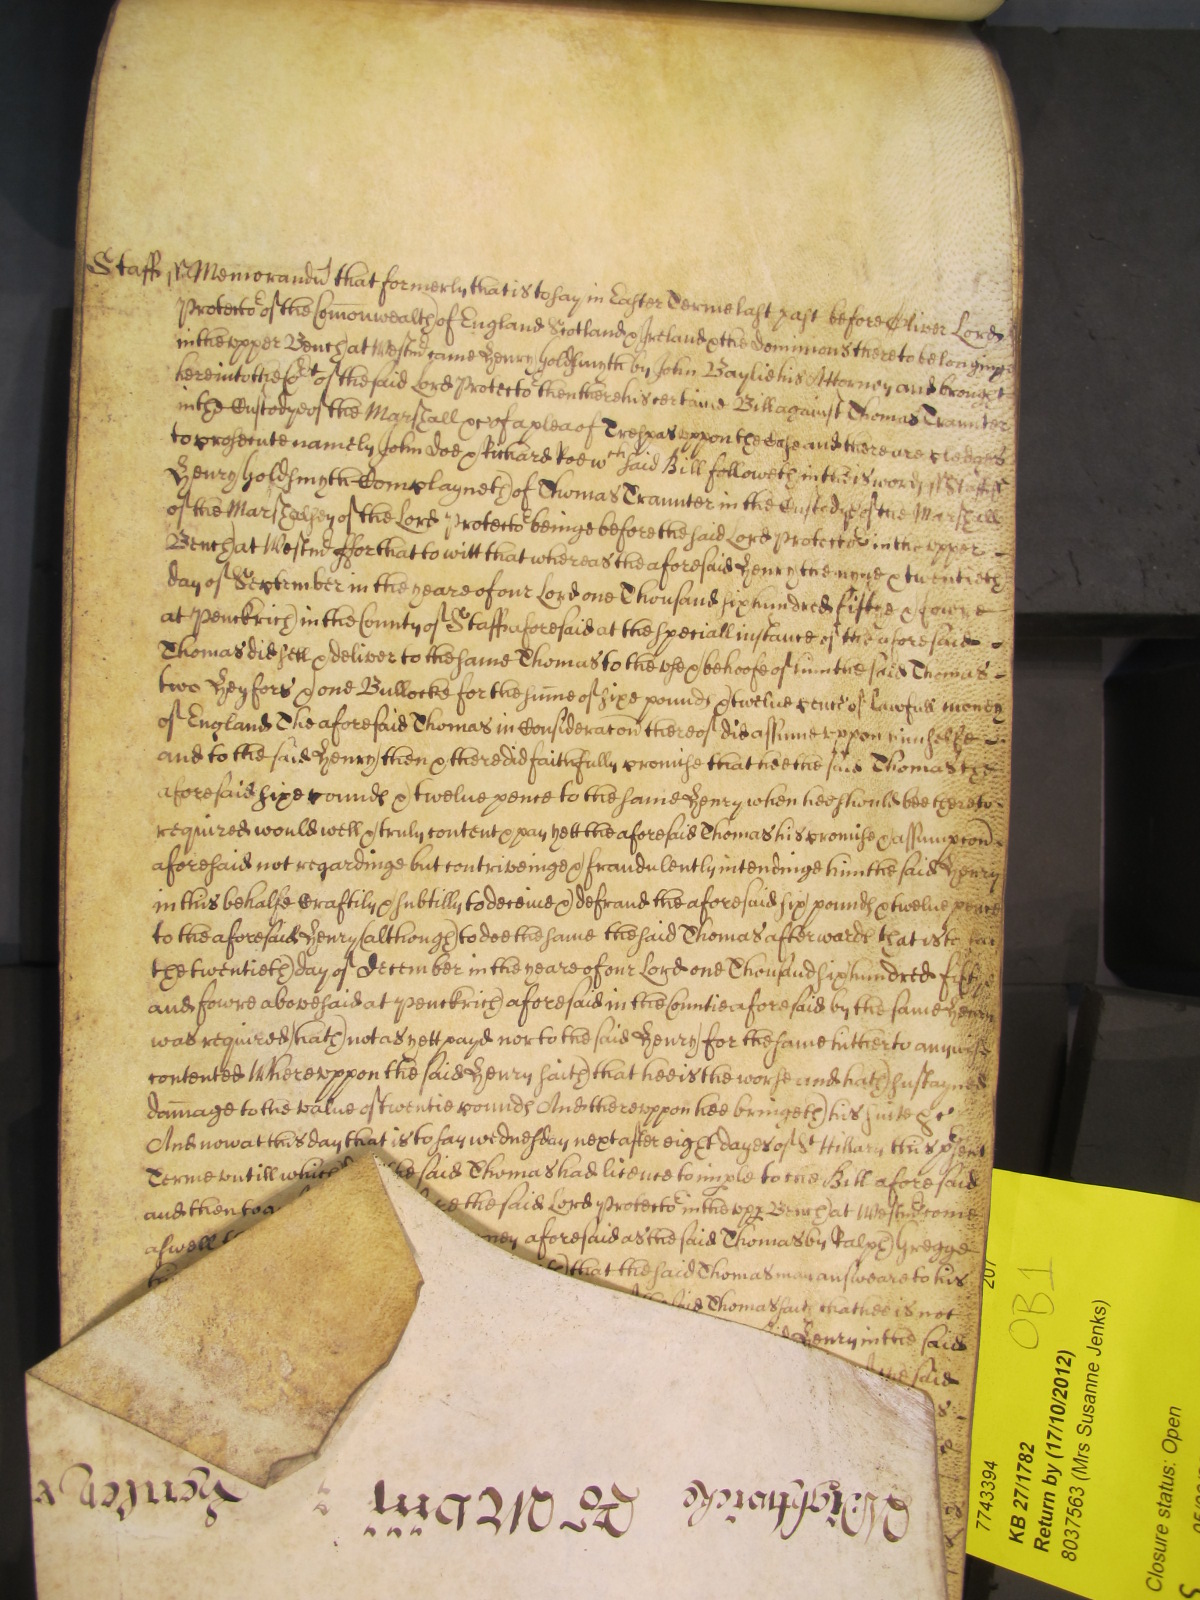 Staff ss Memorandū that formerly that is to say in Easter Terme last past before Oliver Lord
Protector of the Com̄onwealth of England Scotland & Ireland & the dominions thereto belonginge
in the upper Bench at Westmr came Henry Goldsmyth by John Baylie his Attorney and brought
here into the Court of the said Lord Protector then there his certaine Bill against Thomas Traunter
in the Custody of the Marshall &c of a plea of Trespas uppon the Case and there are pledges
to prosecute namely John Doe & Richard Roe wch said Bill followeth in theis words ss Staff ss
Henry Goldsmyth Complayneth of Thomas Traunter in the Custody of the Marshall
of the Marshalsey of the Lord Protector beinge before the said Lord Protector in the upper
Bench at Westmr ffor that to witt that whereas the aforesaid Henry the nyne & twentieth
day of September in the yeare of our Lord one Thousand six hundred fiftye & fowre
at Penckrich in the County of Staff aforesaid at the speciall instance of the aforesaid
Thomas did sell & deliver to the same Thomas to the use & behoofe of him the said Thomas
two Heyfors & one Bullocke for the sum̄e of sixe pounds & twelve pence of lawfull money
of England The aforesaid Thomas in Consideracon thereof did assume uppon himselfe
and to the said Henry then & there did faithfully promise that hee the said Thomas the
aforesaid sixe pounds & twelve pence to the same Henry when hee should bee thereto
required would well & truly content & pay yett the aforesaid Thomas his promise & assumpcon
aforesaid not regardinge but contriveinge & fraudulently intendinge him the said Henry
in this behalfe Craftily & subtilly to deceive & defraud the aforesaid six pounds & twelve pence
to the aforesaid Henry (although to doe the same the said Thomas afterwards that is to say
the twentieth day of December in the yeare of our Lord one Thousand six hundred fifty
and fowre abovesaid at Penckrich aforesaid in the Countie aforesaid by the same Henry
was required) hath not as yett payd nor to the said Henry for the same hitherto anywise
contented Whereuppon the said Henry saith that hee is the worse and hath sustayned
dam̄age to the value of twentie pounds And thereuppon hee bringeth his suite &c
And now at this day that is to say wednesday next after eight dayes of St Hillary this psent
Terme untill which the said Thomas had licence to imple to the Bill aforesaid
and then to a the said Lord Protector in the upp Bench at Westmr come
aswell aforesaid as the said Thomas by Ralph Gregge
that the said Thomas may answeare to his
said Thomas saith that hee is not
Henry in the said
the said
Wightwicke
207
OB1
7743394
KB 27/1782
Return by (17/10/2012)
8037563 (Mrs Susanne Jenks)
Closure status: Open